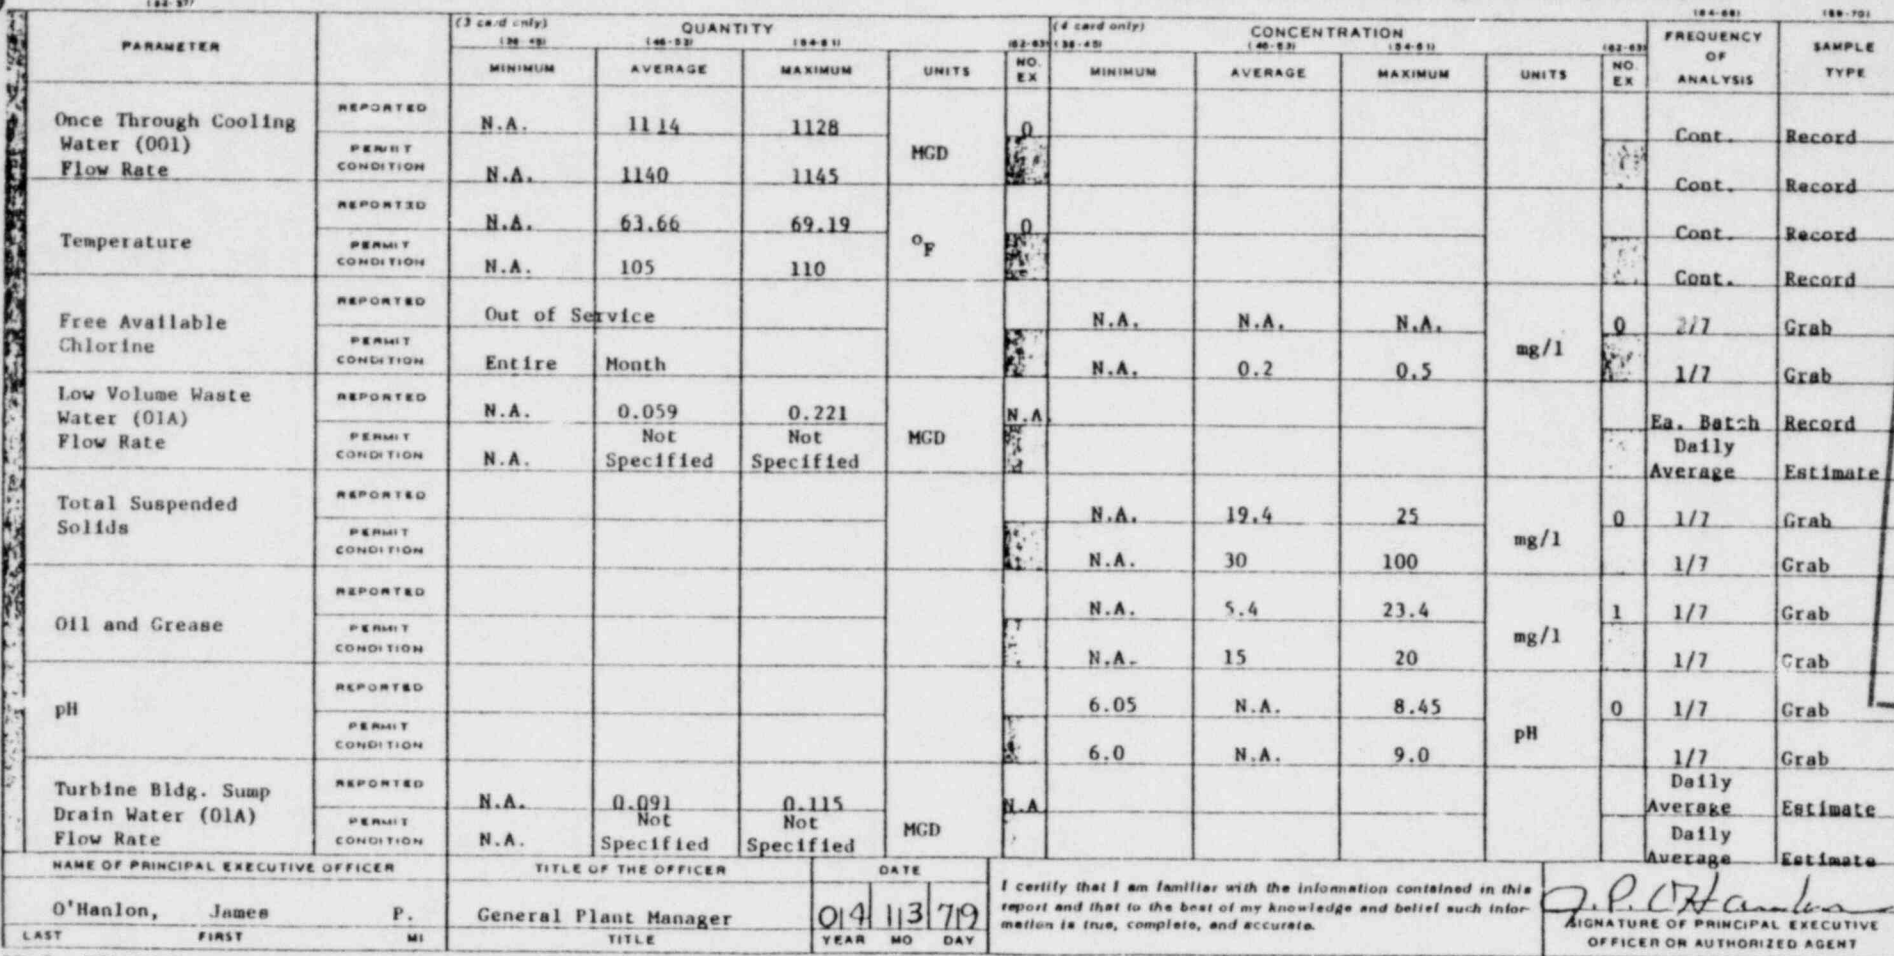 (32-37)
(3 card only) QUANTITY (4 card only) CONCENTRATION (64-68) (69-70)
(38-45) (46-53) (54-61) (62-63) (38-45) (46-53) (54-61) (62-63)
PARAMETER MINIMUM AVERAGE MAXIMUM UNITS NO. EX MINIMUM AVERAGE MAXIMUM UNITS NO. EX FREQUENCY OF ANALYSIS SAMPLE TYPE
Once Through Cooling Water (001) Flow Rate
REPORTED N.A. 1114 1128 MGD 0 Cont. Record
PERMIT CONDITION N.A. 1140 1145 Cont. Record
Temperature
REPORTED N.A. 63.66 69.19 °F 0 Cont. Record
PERMIT CONDITION N.A. 105 110 Cont. Record
Free Available Chlorine
REPORTED Out of Service N.A. N.A. N.A. mg/l 0 2/7 Grab
PERMIT CONDITION Entire Month N.A. 0.2 0.5 1/7 Grab
Low Volume Waste Water (01A) Flow Rate
REPORTED N.A. 0.059 0.221 MGD N.A Ea. Batch Record
PERMIT CONDITION N.A. Not Specified Not Specified Daily Average Estimate
Total Suspended Solids
REPORTED N.A. 19.4 25 mg/l 0 1/7 Grab
PERMIT CONDITION N.A. 30 100 1/7 Grab
Oil and Grease
REPORTED N.A. 5.4 23.4 mg/l 1 1/7 Grab
PERMIT CONDITION N.A. 15 20 1/7 Grab
pH
REPORTED 6.05 N.A. 8.45 pH 0 1/7 Grab
PERMIT CONDITION 6.0 N.A. 9.0 1/7 Grab
Turbine Bldg. Sump Drain Water (01A) Flow Rate
REPORTED N.A. 0.091 0.115 MGD N.A Daily Average Estimate
PERMIT CONDITION N.A. Not Specified Not Specified Daily Average Estimate
NAME OF PRINCIPAL EXECUTIVE OFFICER TITLE OF THE OFFICER DATE
O'Hanlon, James P. General Plant Manager 014 113 719
LAST FIRST MI TITLE YEAR MO DAY
I certify that I am familiar with the information contained in this
report and that to the best of my knowledge and belief such infor-
mation is true, complete, and accurate.
J.P. O'Hanlon
SIGNATURE OF PRINCIPAL EXECUTIVE
OFFICER OR AUTHORIZED AGENT